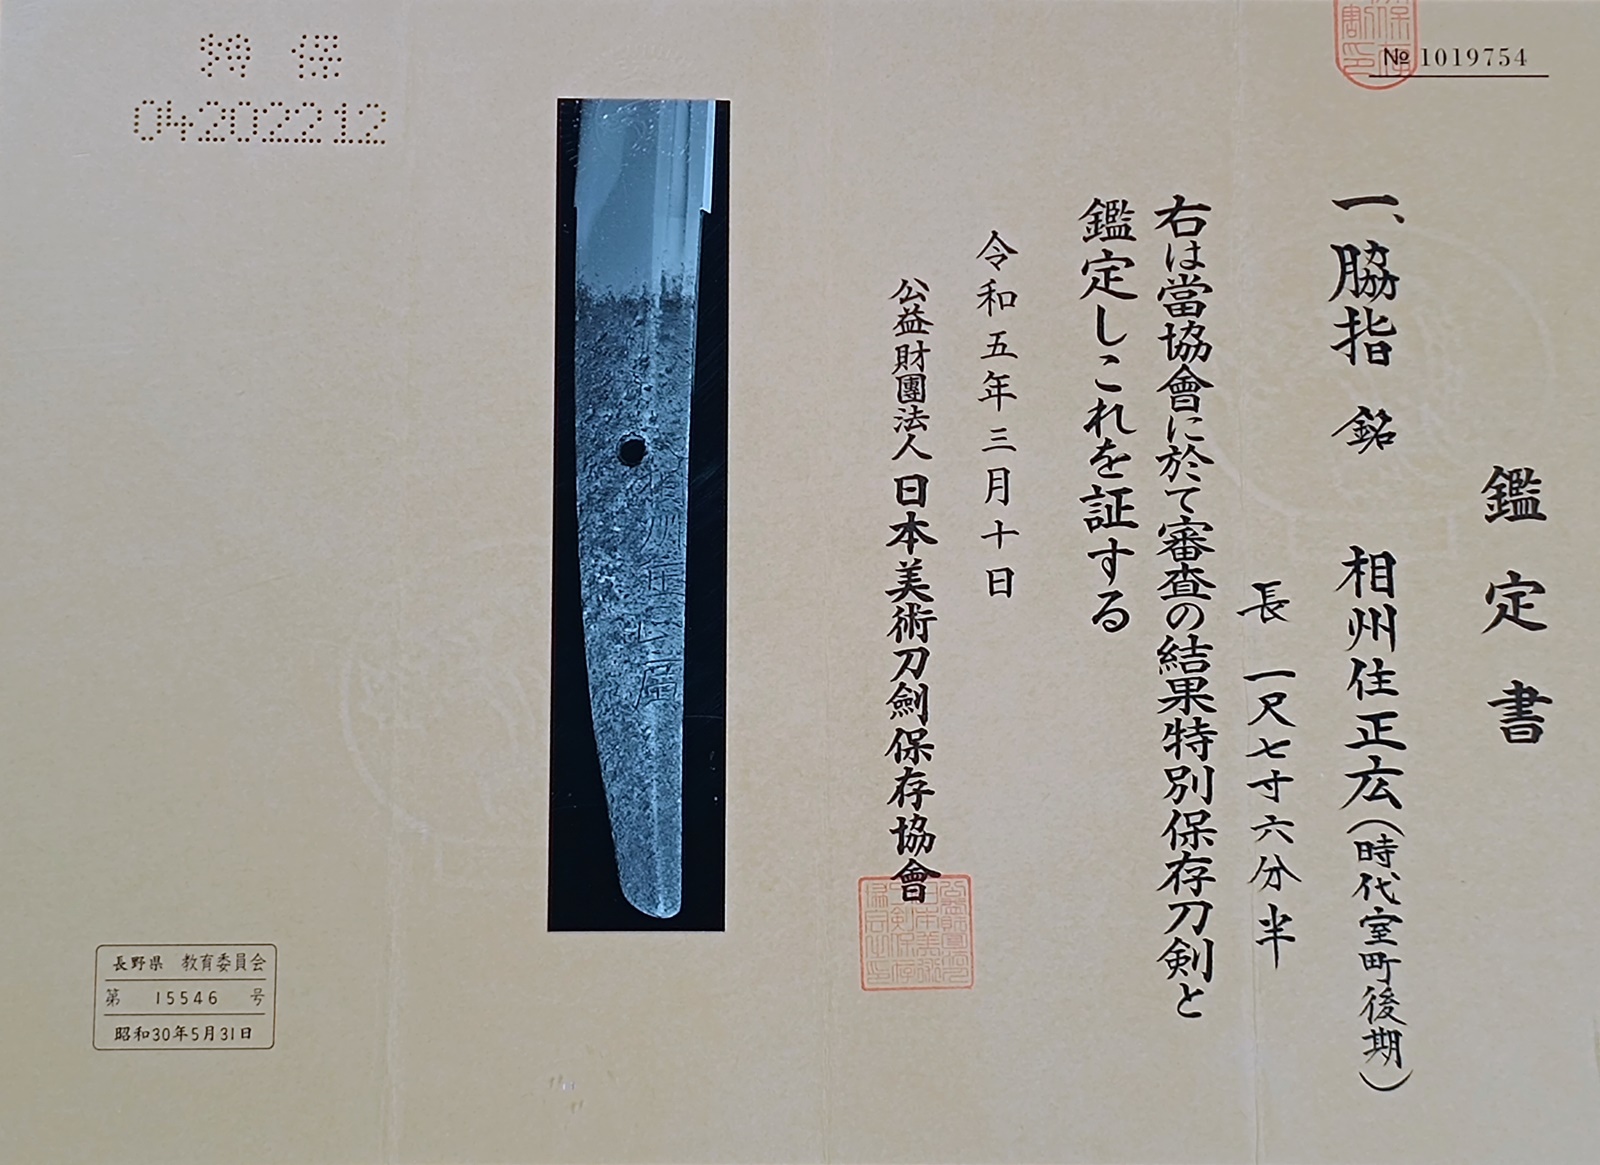 № 1019754
鑑定書
一、脇指 銘 相州住正広(時代室町後期)
長 一尺七寸六分半
右は當協會に於て審査の結果特別保存刀剣と
鑑定しこれを証する
令和五年三月十日
公益財團法人 日本美術刀劍保存協會
特 保
04202212
長野県 教育委員会
第 15546 号
昭和30年5月31日